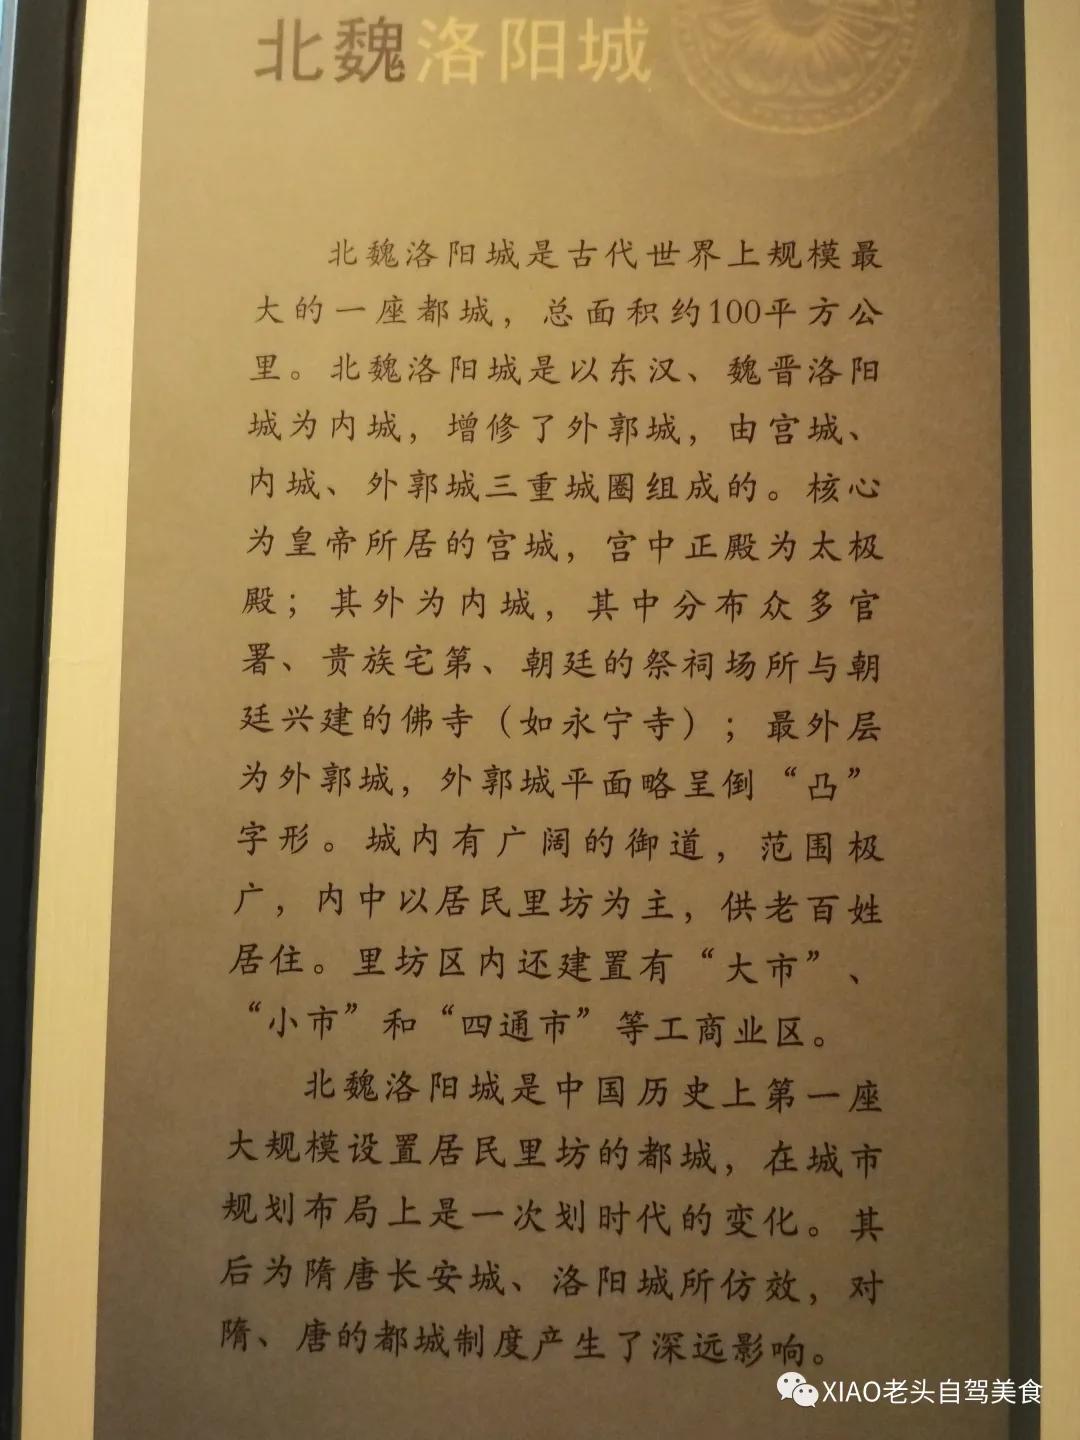 北魏洛阳城
北魏洛阳城是古代世界上规模最
大的一座都城，总面积约100平方公
里。北魏洛阳城是以东汉、魏晋洛阳
城为内城，增修了外郭城，由宫城、
内城、外郭城三重城圈组成的。核心
为皇帝所居的宫城，宫中正殿为太极
殿；其外为内城，其中分布众多官
署、贵族宅第、朝廷的祭祠场所与朝
廷兴建的佛寺（如永宁寺）；最外层
为外郭城，外郭城平面略呈倒“凸”
字形。城内有广阔的御道，范围极
广，内中以居民里坊为主，供老百姓
居住。里坊区内还建置有“大市”、
“小市”和“四通市”等工商业区。
北魏洛阳城是中国历史上第一座
大规模设置居民里坊的都城，在城市
规划布局上是一次划时代的变化。其
后为隋唐长安城、洛阳城所仿效，对
隋、唐的都城制度产生了深远影响。
XIAO老头自驾美食